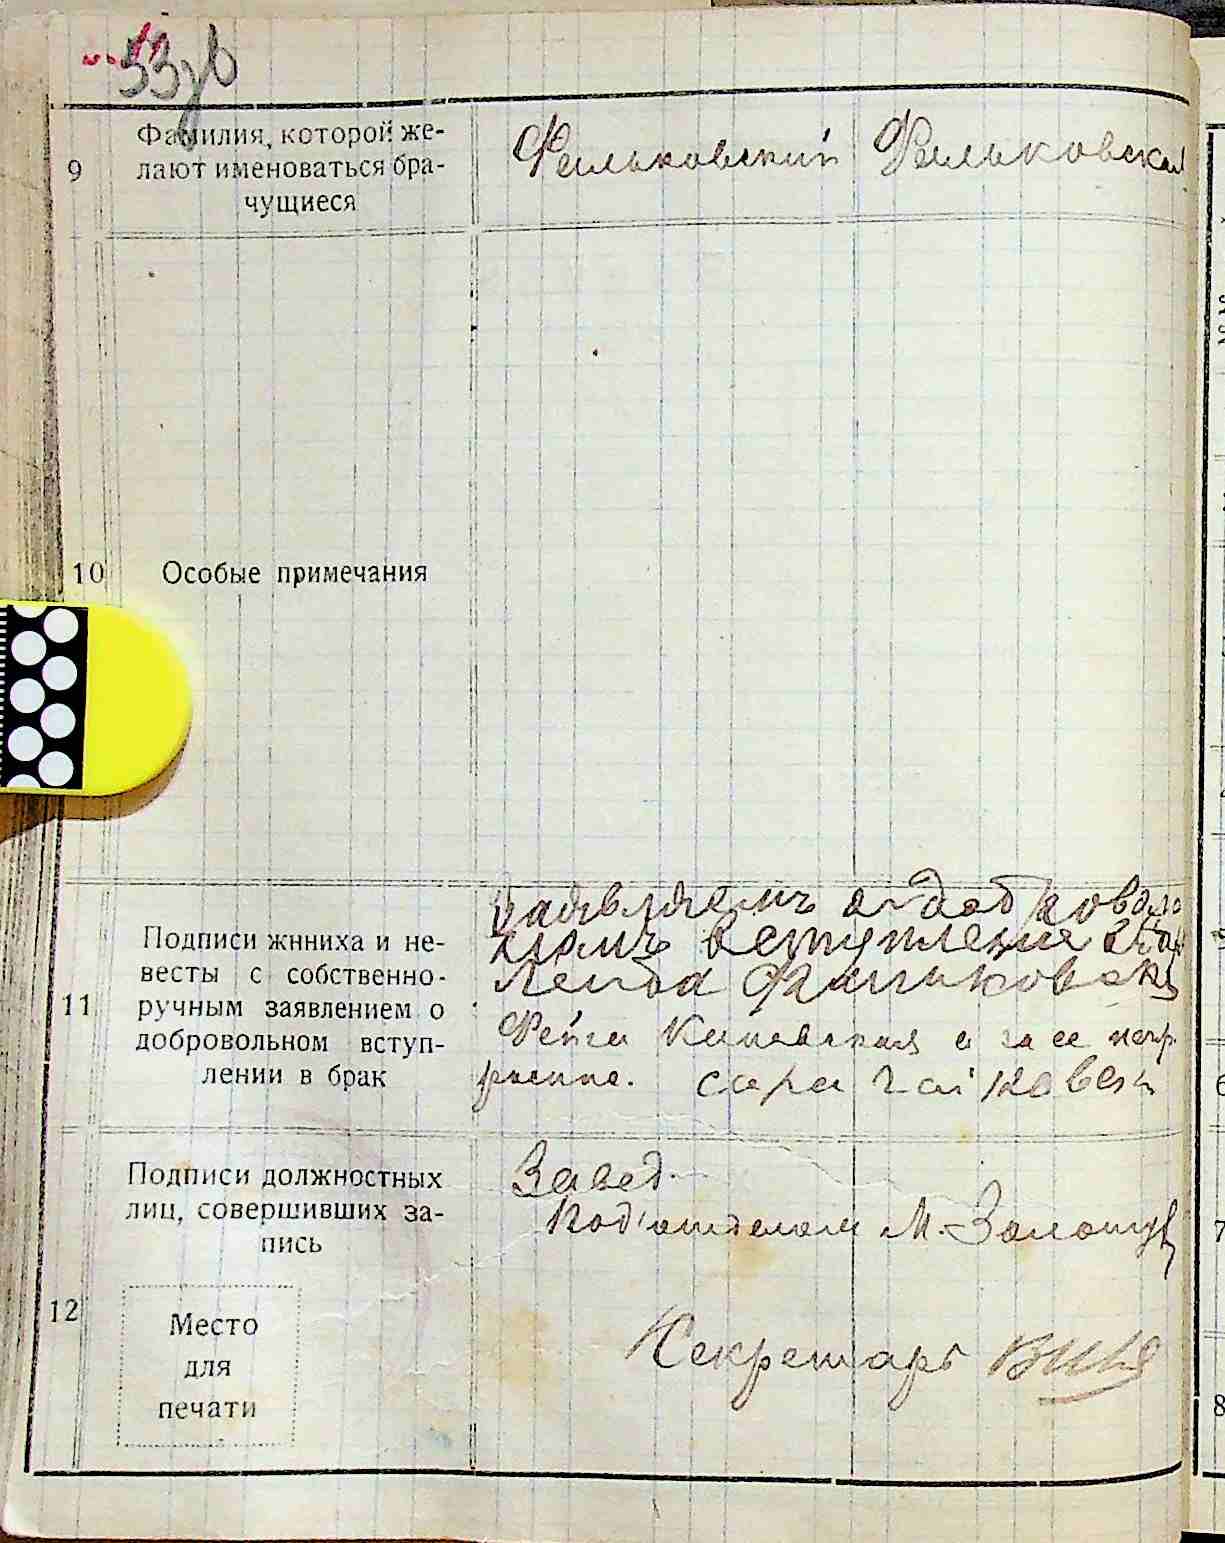 53
9
Фамилия, которой же-
лают именоваться бра-
чущиеся
Фальковский Фальковская
10 Особые примечания
11
Подписи жнниха и не-
весты с собственно-
ручным заявлением о
добровольном вступ-
лении в брак
заявляемъ о доброволь
номъ вступление
Лейба Фальковск
Фейга Каневская а за ее негр
сара
Подписи должностных
лиц, совершивших за-
пись
Завед.
Под'отделом М. Золоту
12
Место
для
печати
Секретарь
6
7
8